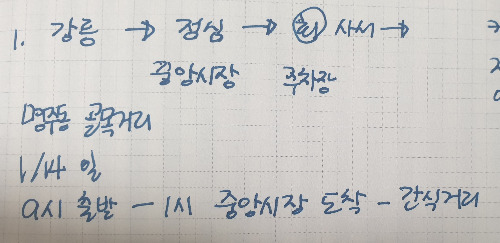 1. 강릉 → 점심 → 회 사서 →
중앙시장 주차장
명동 골목거리
1/14 일
9시 출발 - 1시 중앙시장 도착 - 간식거리